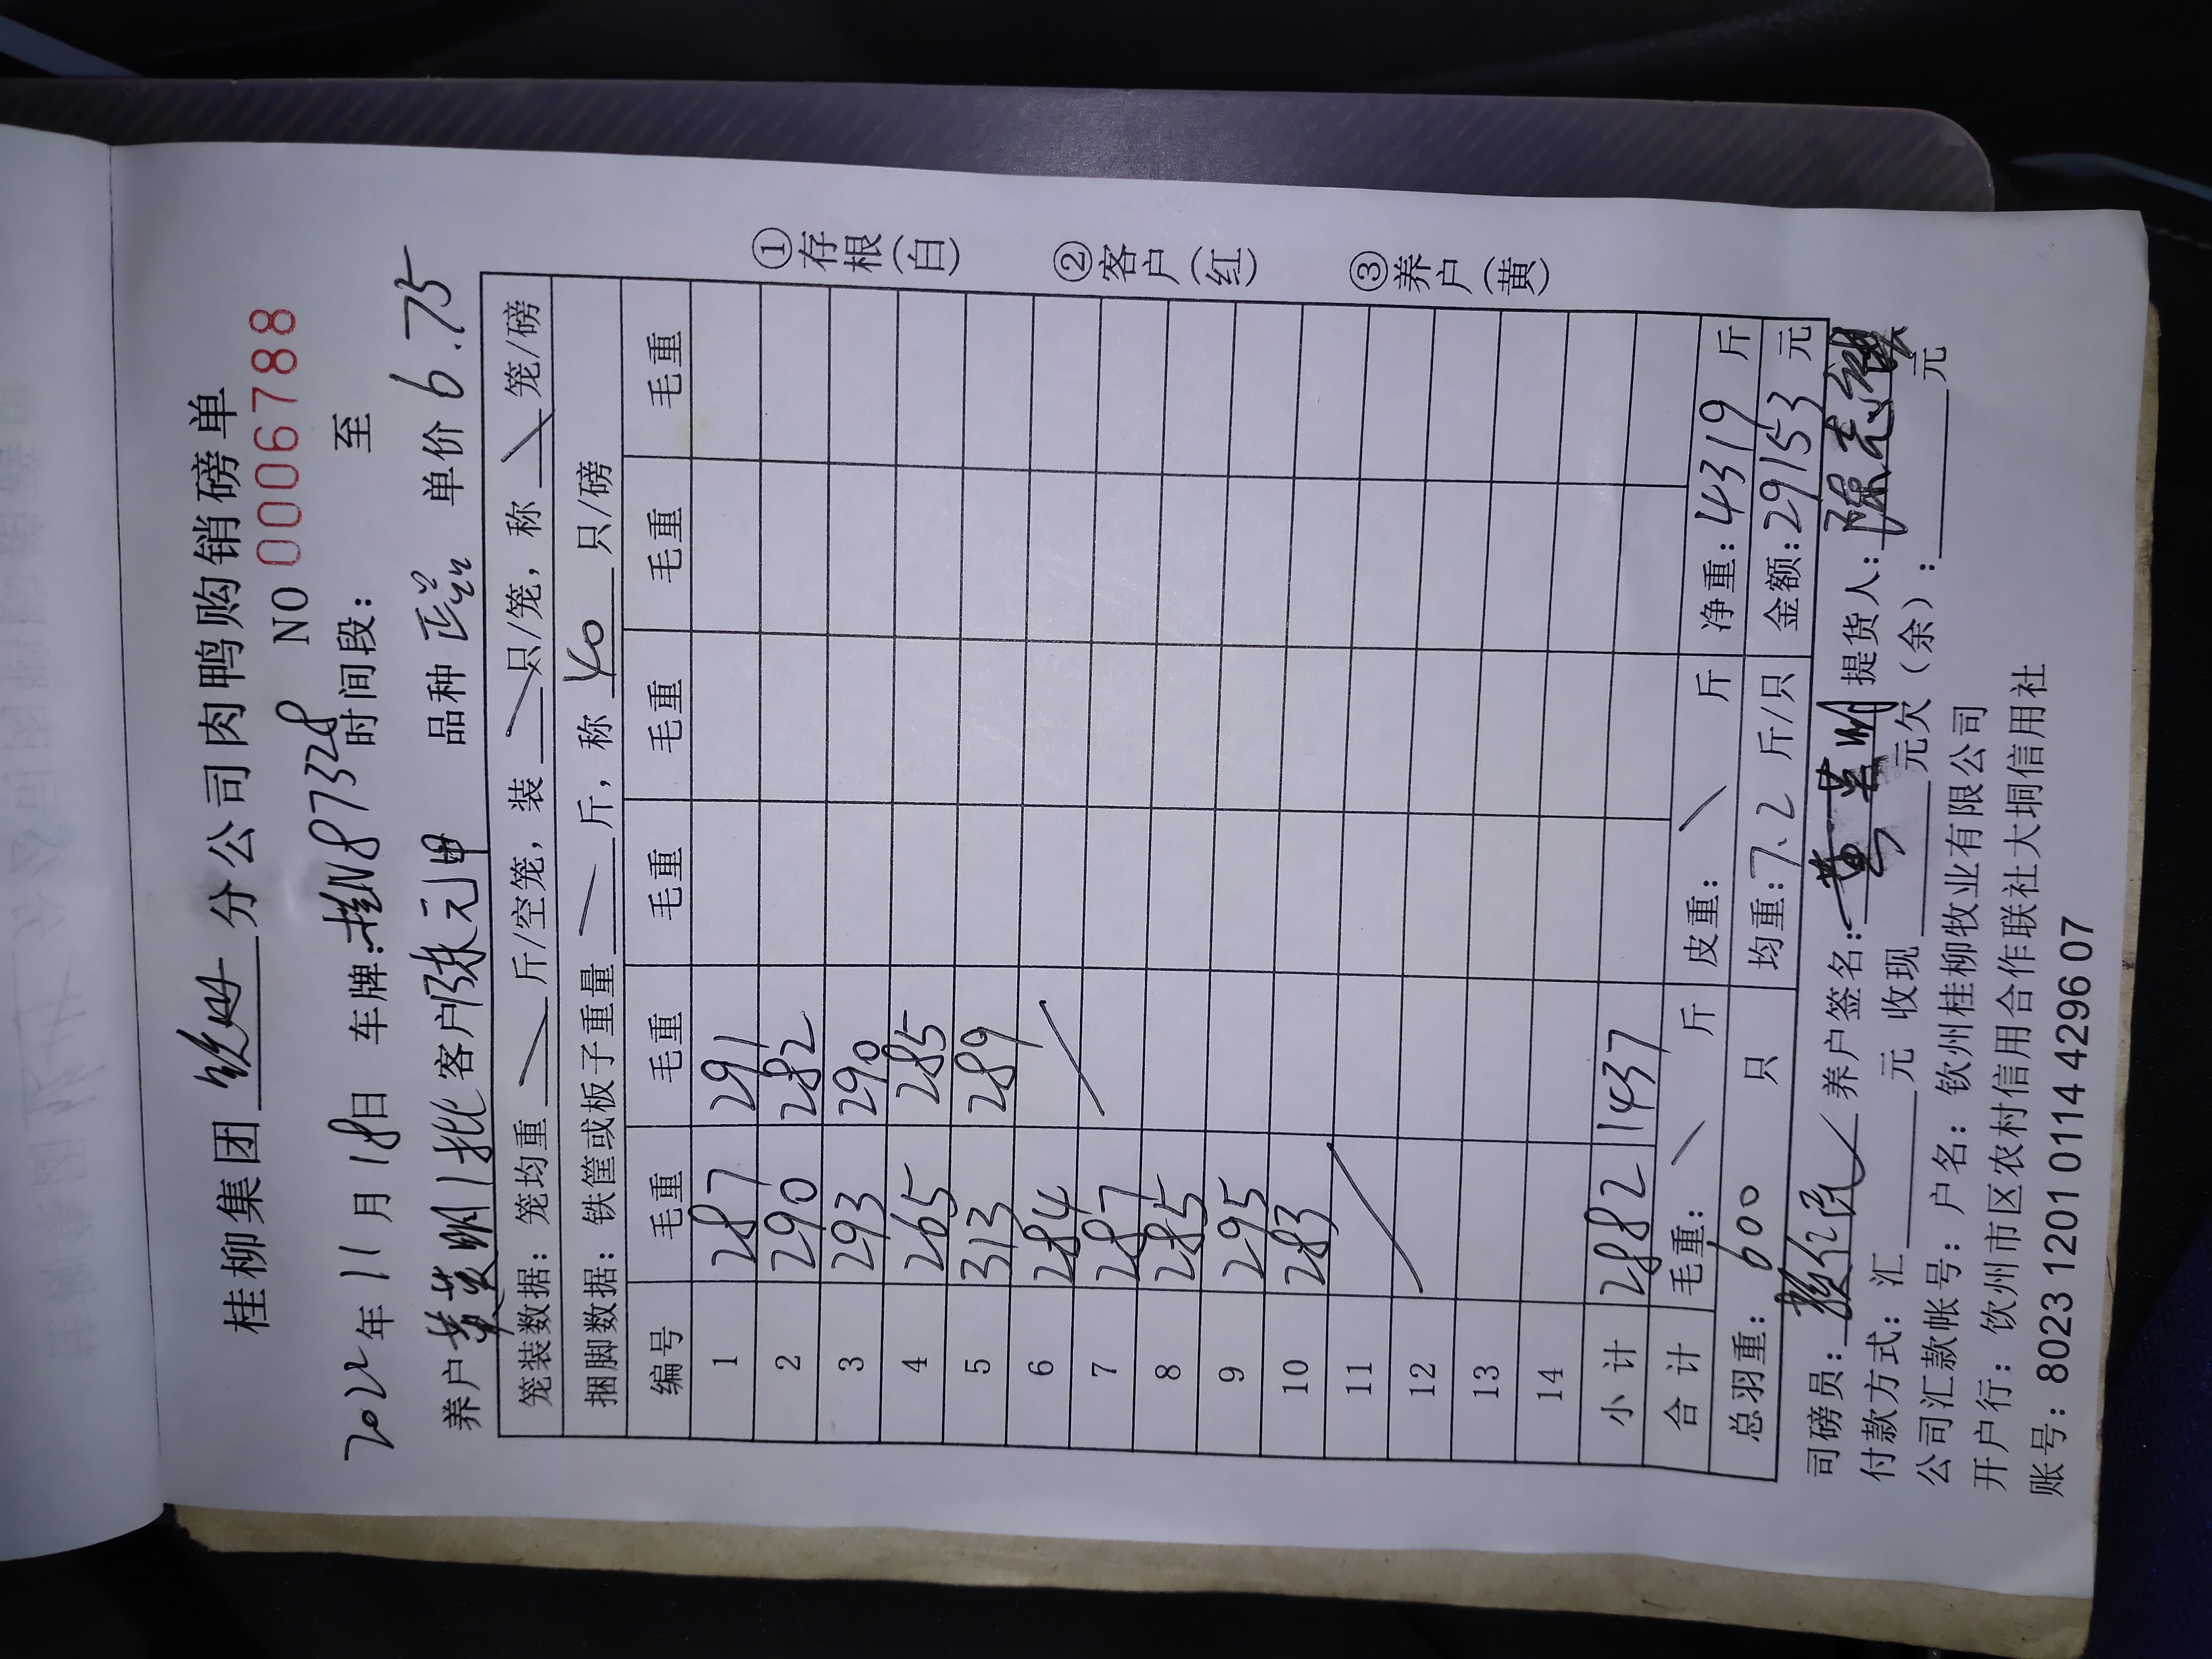 桂柳集团 钦州 分公司肉鸭购销磅单
NO 0006788
2022年11月18日 车牌:桂N87328 时间段: 至
养户 黄英明1批 客户 陈元申 品种 单价 6.75
笼装数据:笼均重 斤/空笼,装 只/笼,称 笼/磅
捆脚数据:铁筐或板子重量 斤,称 40 只/磅
编号 毛重 毛重 毛重 毛重 毛重 毛重
1 287 291
2 290 282
3 293 290
4 265 285
5 313 289
6 284
7 287
8 285
9 295
10 283
11
12
13
14
小计 2882 1437
合计 毛重: 斤 皮重: 斤 净重:4319 斤
总羽重: 600 只 均重:7.2 斤/只 金额:29153 元
司磅员: 养户签名:黄英明 提货人:
付款方式:汇 元 收现 元欠(余): 元
公司汇款帐号:户名:钦州桂柳牧业有限公司
开户行:饮州市区农村信用合作联社大垌信用社
账号:8023 1201 0114 4296 07
①存根(白)
②客户(红)
③养户(黄)